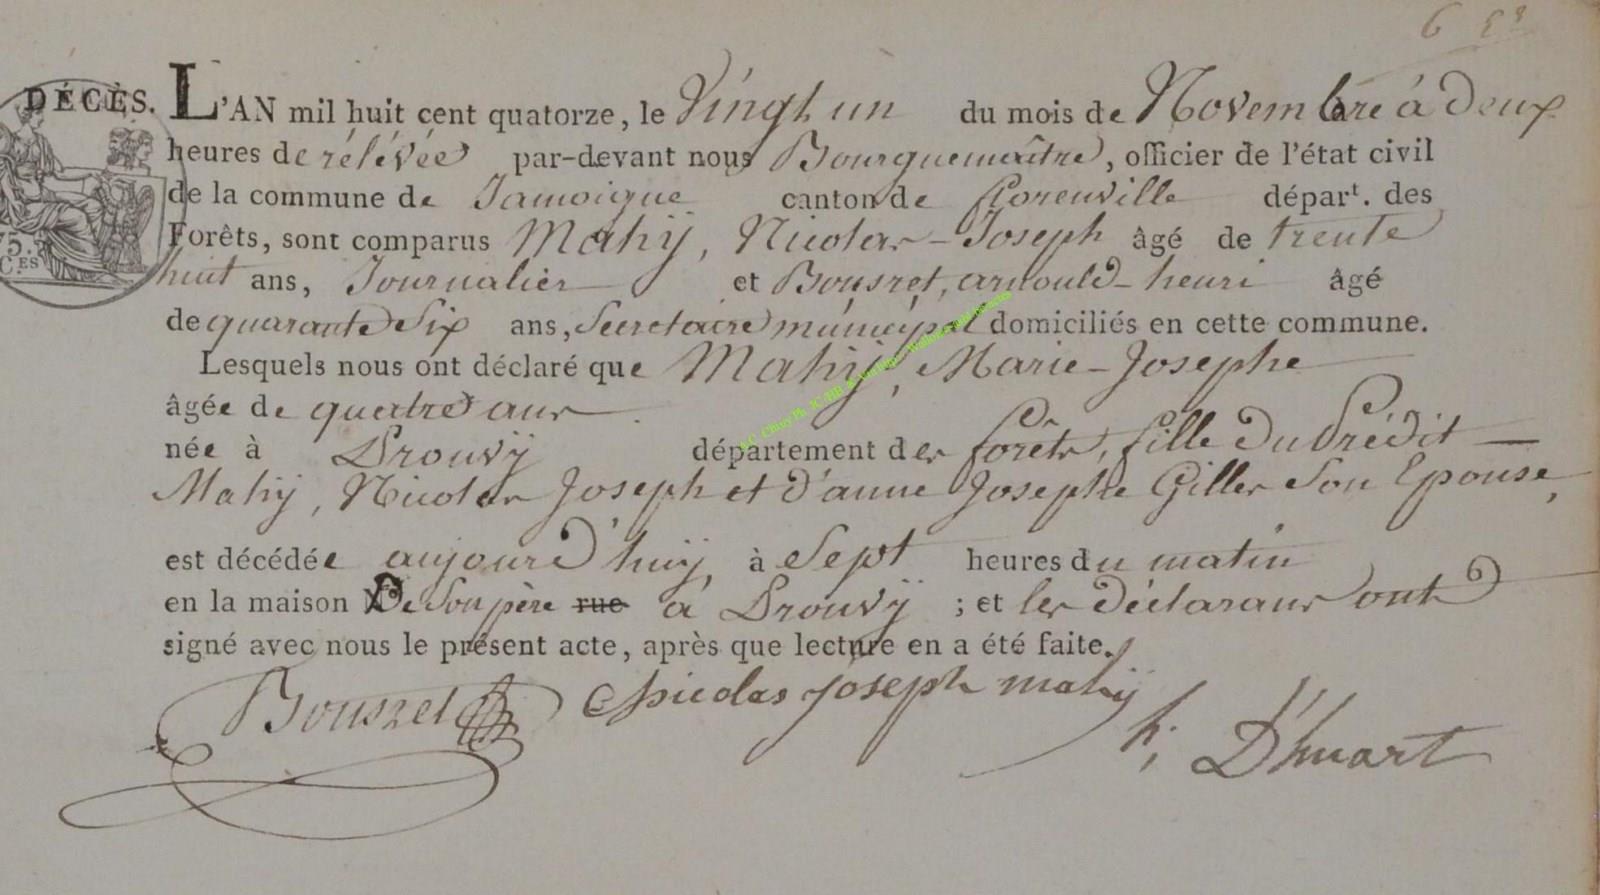 DÉCÈS. L'AN mil huit cent quatorze, le Vingt un du mois de Novembre à deux
heures de rélévée par-devant nous Bourguemaître, officier de l'état civil
de la commune de Jamoigne canton de florenville départ. des
Forêts, sont comparus Mahÿ, Nicolas-Joseph âgé de trente
huit ans, Journalier et Bousret, arnould-henri âgé
de quarante Six ans, Secretaire municipal domiciliés en cette commune.
Lesquels nous ont déclaré que Mahÿ, Marie-Josephe
âgée de quatre ans
née à Prouvÿ département des forêts, fille du Prédit
Mahÿ, Nicolas Joseph et d'anne Josephe Gilles Son Epouse,
est décédée aujourd'huÿ à Sept heures du matin
en la maison De Son père rue à Prouvÿ ; et les déclarans ont
signé avec nous le présent acte, après que lecture en a été faite.
Bousret Nicolas joseph mahÿ
h; D'huart
75.
CES